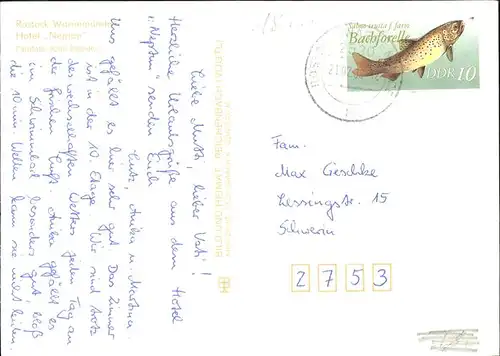 Rostock-Warnemünde
Hotel „Neptun“
Liebe Mutti, lieber Vati!
Herzliche Urlaubsgrüße aus dem Hotel
„Neptun“ senden Euch
Lutz, Anika u. Martina.
Uns gefällt es hier sehr gut. Das Zimmer
ist in der 10. Etage. Wir sind trotz
des wechselhaften Wetters jeden Tag an
der frischen Luft. Anika gefällt es
im Schwimmbad besonders gut, bloß
die 10 min. Wellen kann sie nicht leiden.
BILD UND HEIMAT REICHENBACH (VOGTL)
Salmo trutta f. fario
Bachforelle
DDR 10
Fam.
Max Geschke
Lessingstr. 15
Schwerin
2 7 5 3